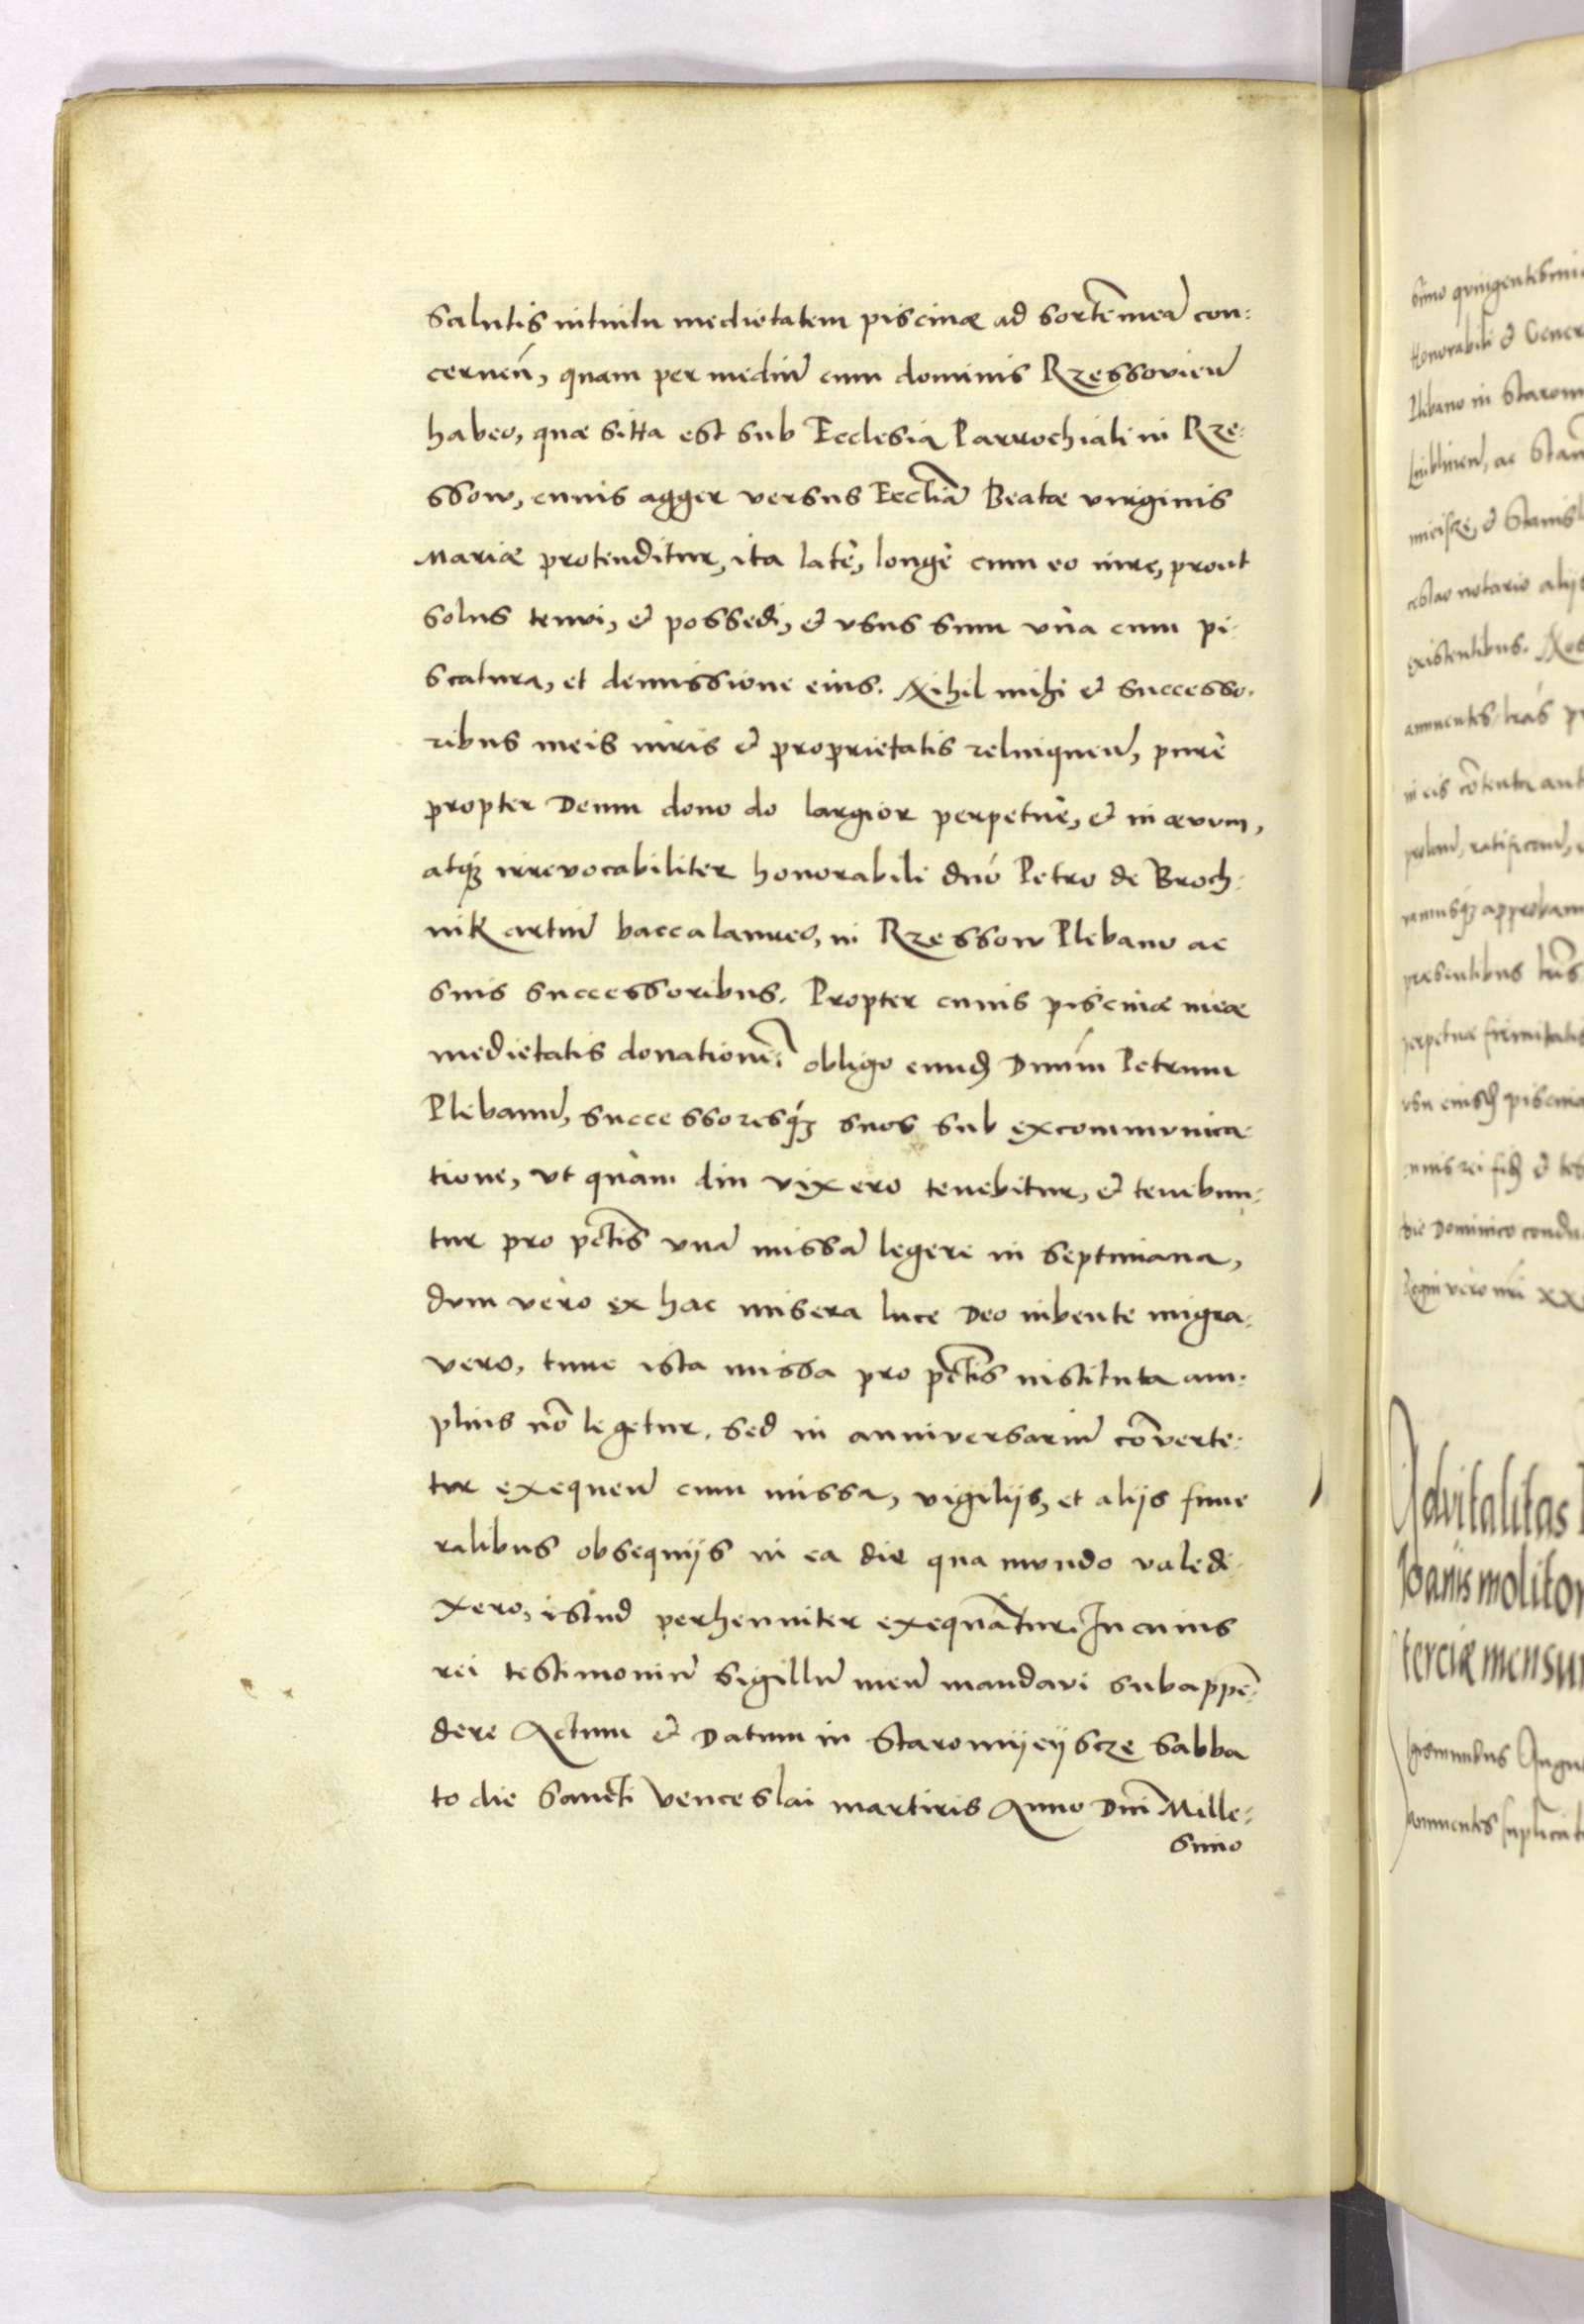 Salutis intuitu medietatem piscinæ ad sortē meā con:
cerneń, quam per mediū cum dominis Rzessovień
habeo, quæ sitta est sub Ecclesia Parrochiali in Rze:
ssow, cuius agger versus Eccliā Beatæ virginis
Mariæ protenditur, ita latè, longè cum eo iure, prout
solus tenui, & possedi, & vsus sum vnà cum pi:
scatura, et demissione eius. Nihil mihi & successo:
ribus meis iuris & proprietatis relinqueń, purè
propter Deum dono do largior perpetuè, & in ævum,
atq; irrevocabiliter honorabili dnó Petro de Broch:
nik artiū baccalaureo, in Rzessow Plebano ac
suis successoribus. Propter cuius piscinæ meæ
medietatis donationē: obligo eund Dnúm Petrum
Plebanū, successoresq; suos sub excommunica
tione, vt quàm diu vixero tenebitur, & tenebun:
tur pro pctīs vnā missā legere in septimana,
dum vèro ex hac misera luce Deo iubente migra:
vero, tunc ista missa pro pctīs instituta am:
plius nō legetur. sed in anniversariū cōverte:
tur exequeń cum missa, vigilijs, et alijs fune
ralibus obsequijs in ea die qua mundo valedi:
xero, istud perhenniter exequātur. In cuius
rei testimoniū Sigillū meū mandavi subappē:
dere Actum & Datum in Staromiyeyscze Sabba
to die Sancti Venceslai martiris Anno Dnī Mille:
simo
simo quingentesimo
Honorabili & Gener
Plebano in Starom
Lublineń, ac Stan
mieiscze, & Stanisl
notario alijs
existentibus. Nos
annuentes, lrás
in eis cōtenta
ratificand,
ramusq; approbam
præsentibus lrīs
perpetuæ firmitatis
vsu eiusd piscinæ
rei fid & tes
die Dominico condu
Regni vèro nrī xx
Advitalitas
Ioānis molitor
terciæ mensur
gismundus Augu